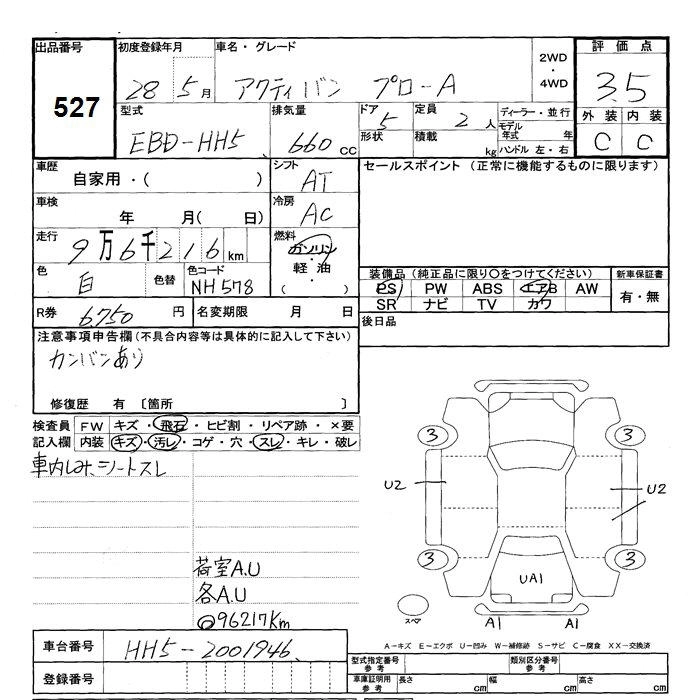 出品番号 初度登録年月 車名・グレード 2WD・4WD 評価点
527 28 5月 アクティバン プロ-A 3.5
型式 排気量 ドア 定員 ディーラー・並行 外装 内装
EBD-HH5 660cc 5 2人 モデル年式 年 C C
形状 積載 kg ハンドル 左・右
車歴 シフト セールスポイント (正常に機能するものに限ります)
自家用・( ) AT
車検 冷房
年 月( 日) AC
走行 燃料
9万6千216km ガソリン・軽油
色 色替 色コード ( ) 装備品 (純正品に限り○をつけてください) 新車保証書
白 NH578 PS PW ABS エアB AW 有・無
SR ナビ TV カワ
R券 6,750円 名変期限 月 日 後日品
注意事項申告欄(不具合内容等は具体的に記入して下さい)
カンバンあり
修復歴 有 〔箇所 〕
検査員 FW キズ・飛石・ヒビ割・リペア跡・×要
記入欄 内装 キズ・汚レ・コゲ・穴・スレ・キレ・破レ
車内しみ、シートスレ
3 3
U2 U2
荷室A.U
各A.U
◎96217Km
3 3
UA1
スペア A1 A1
A-キズ E-エクボ U-凹み W-補修跡 S-サビ C-腐食 XX-交換済
車台番号 HH5-2001946
登録番号
型式指定番号 参考 類別区分番号 参考
車庫証明用 参考 長さ cm 幅 cm 高さ cm